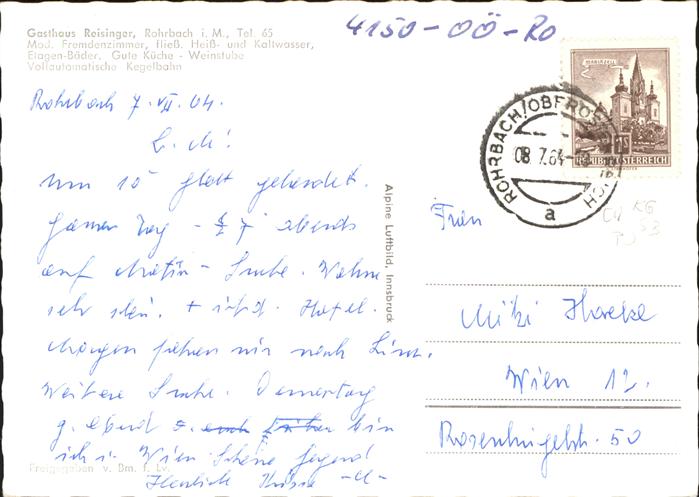 Gasthaus Reisinger, Rohrbach i. M., Tel. 65
Mod. Fremdenzimmer, fließ. Heiß- und Kaltwasser,
Etagen-Bäder, Gute Küche - Weinstube
Vollautomatische Kegelbahn
4150-OÖ-Ro
MARIAZELL
1S
REPUBLIK ÖSTERREICH
ROHRBACH/OBERÖSTERREICH
08.7.64
a
Rohrbach 7. VII. 64.
L. M!
Um 10 glatt gelandet.
Ganzen Tag - ½ 7 abends
auf - Suche. Wohne
sehr + Hotel.
Morgen fahren wir nach Linz.
Weitere Suche. Donnerstag
g. Abend bin
ich i. Wien. Schöne Gegend
Herzlich -M-
Alpine Luftbild, Innsbruck
Freigegeben v. Bm. f. Lv.
Frau
Mitzi
Wien 12.
50